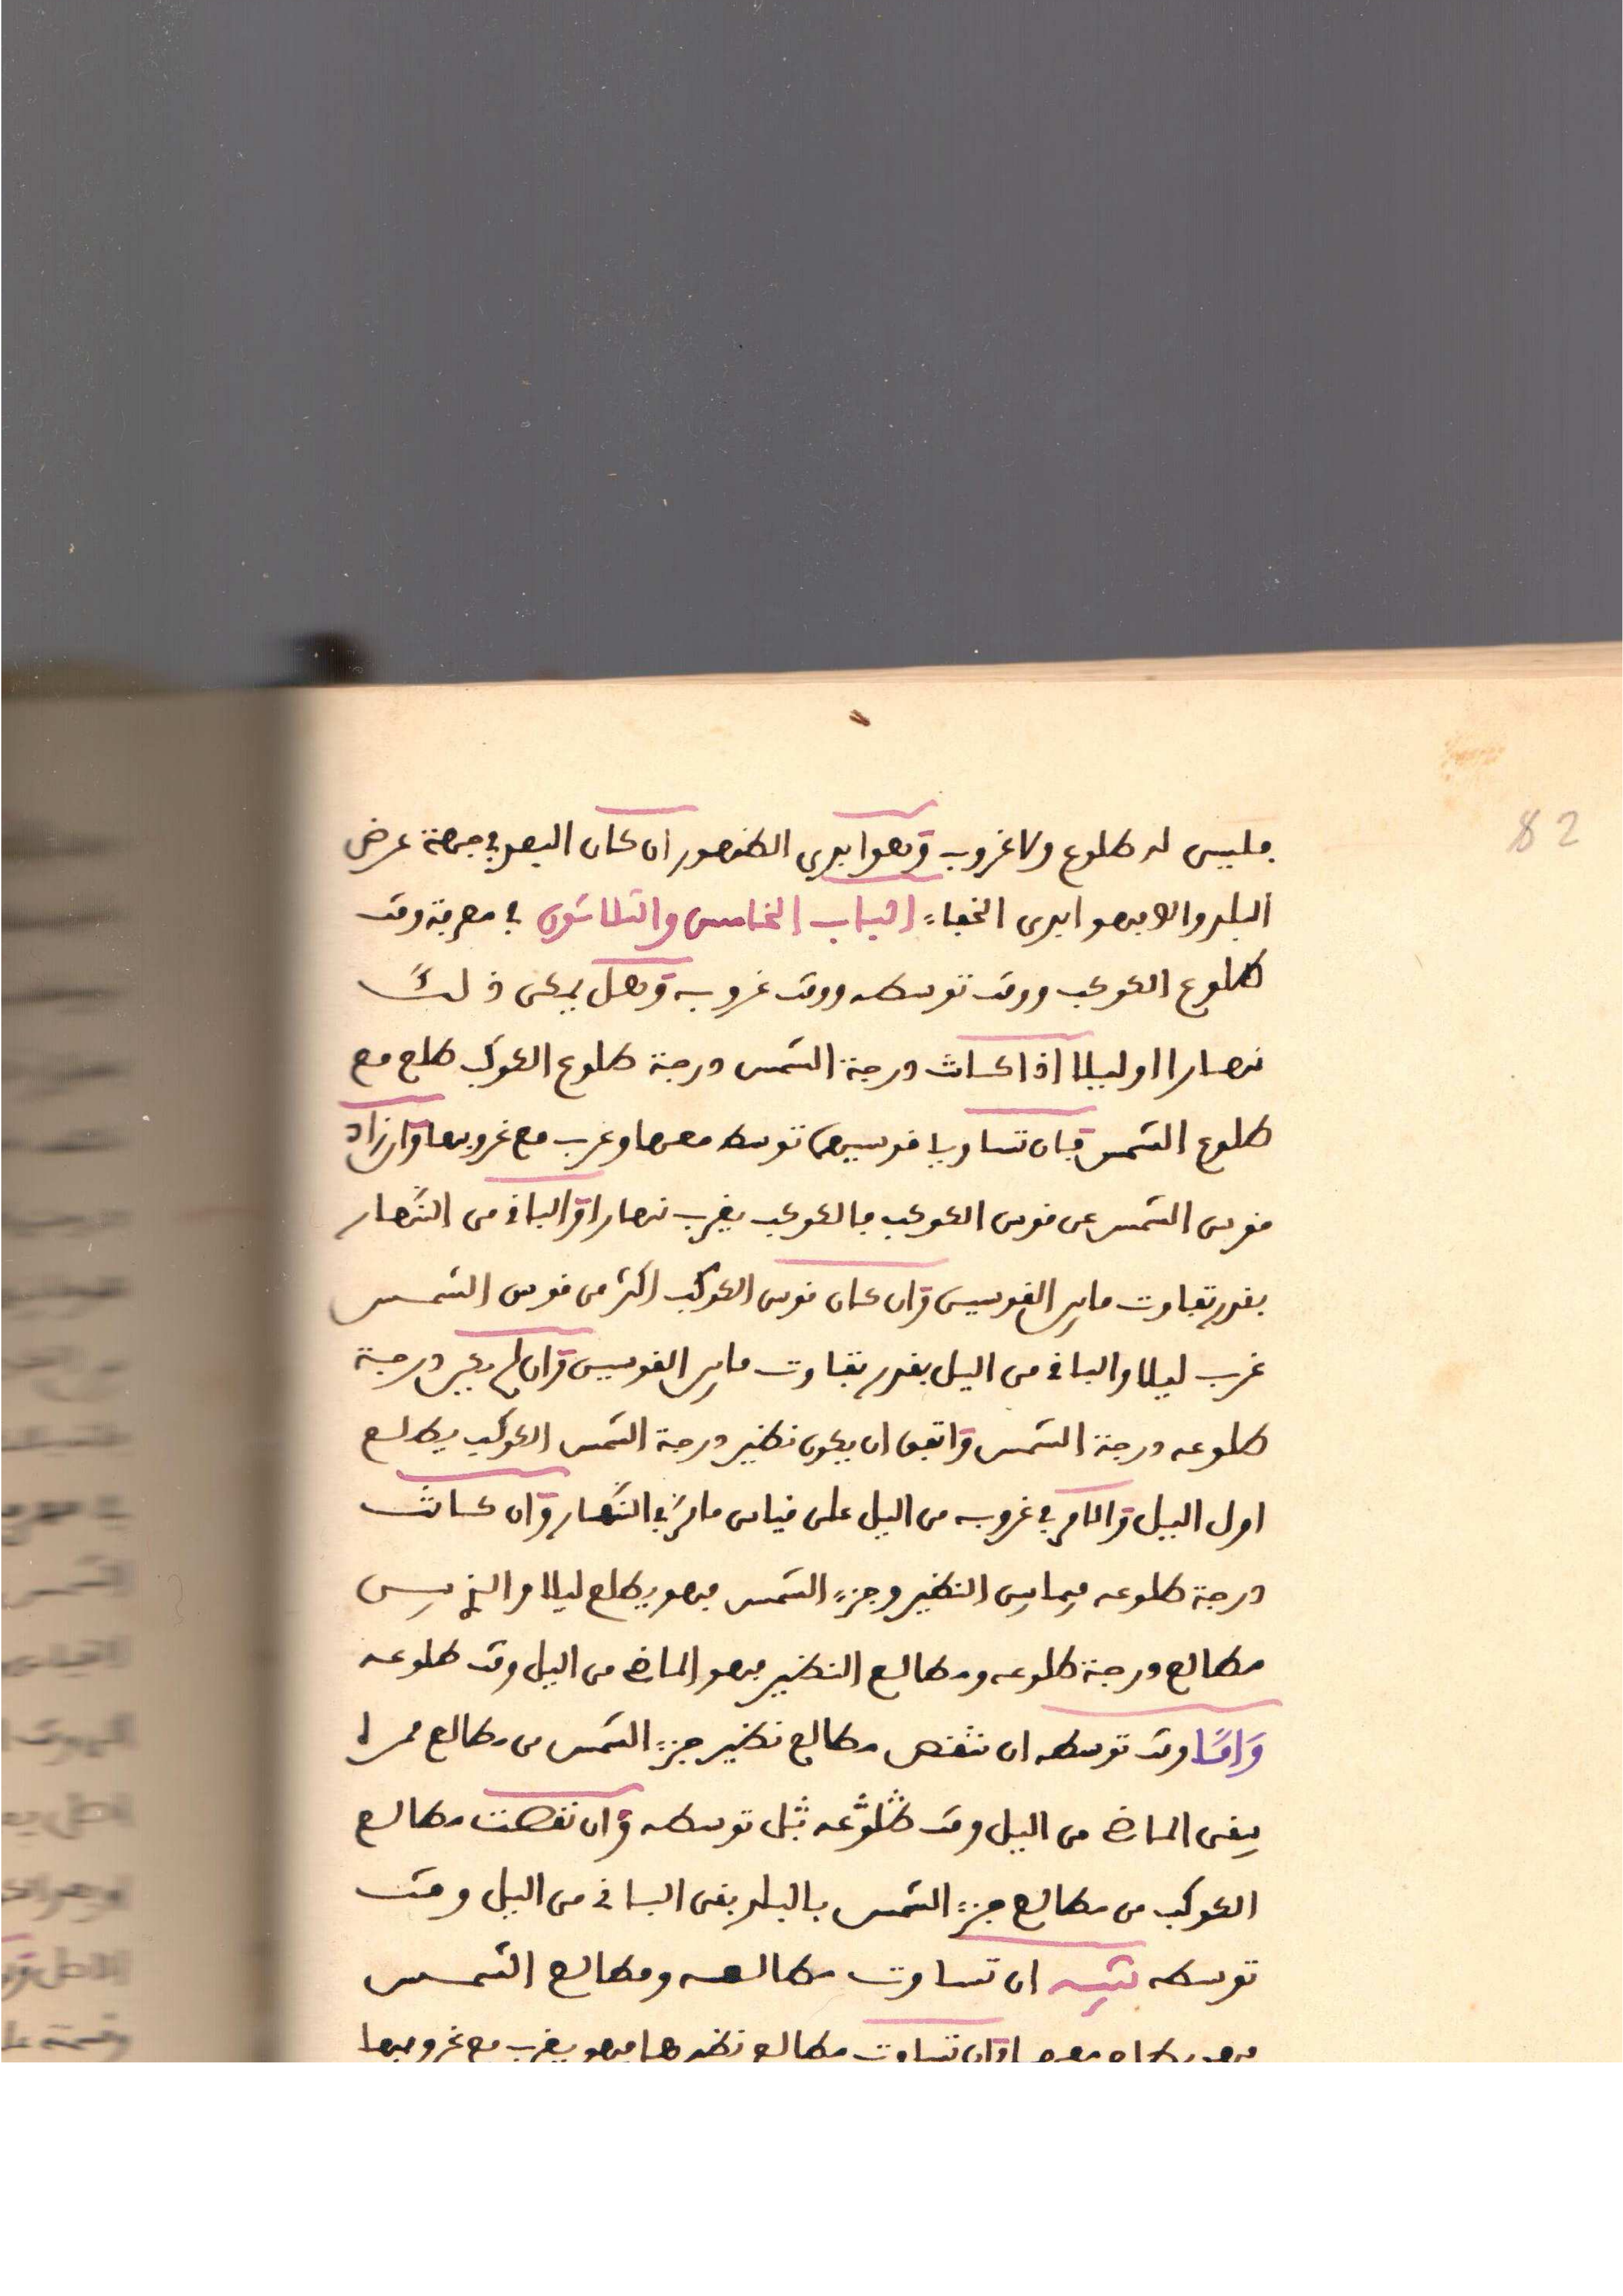 82
فليس له طلوع ولا غروب وهو ابدي الظهور ان كان البعد في جهة عرض
البلد والا فهو ابدى الخفاء الباب الخامس والثلاثون في معرفة وقت
طلوع الكوكب ووقت توسطه ووقت غروبه وهل يمكن ذلك
نهارا او ليلا اذا كانت درجة الشمس درجة طلوع الكوكب طلع مع
طلوع الشمس فان تساويا قوسيهما توسط معها وغرب مع غروبها وان زاد
قوس الشمس عن قوس الكوكب فالكوكب يغرب نهارا والباقي من النهار
بقدر تفاوت ما بين القوسين وان كان قوس الكوكب اكثر من قوس الشمس
غرب ليلا والباقي من اليل بقدر تفاوت ما بين القوسين وان لم يكن درجة
طلوعه درجة الشمس واتفق ان يكون نظير درجة الشمس الكوكب يطلع
اول اليل والامر في غروبه من اليل على قياس ما مر في النهار وان كانت
درجة طلوعه فيما بين النظير وجزء الشمس فهو يطلع ليلا والذي بين
مطالع درجة طلوعه ومطالع النظير فهو الماضي من اليل وقت طلوعه
واما وقت توسطه ان تنقص مطالع نظير جزء الشمس من مطالع ممره
يبقى الماضي من اليل وقت طلوعه بل توسطه وان نقصت مطالع
الكوكب من مطالع جزء الشمس بالبلد بقى الباقي من اليل وقت
توسطه تنبيه ان تساوت مطالعه ومطالع الشمس
فهو يطلع معها وان تساوت مطالع نظيرها فهو يغرب مع غروبها